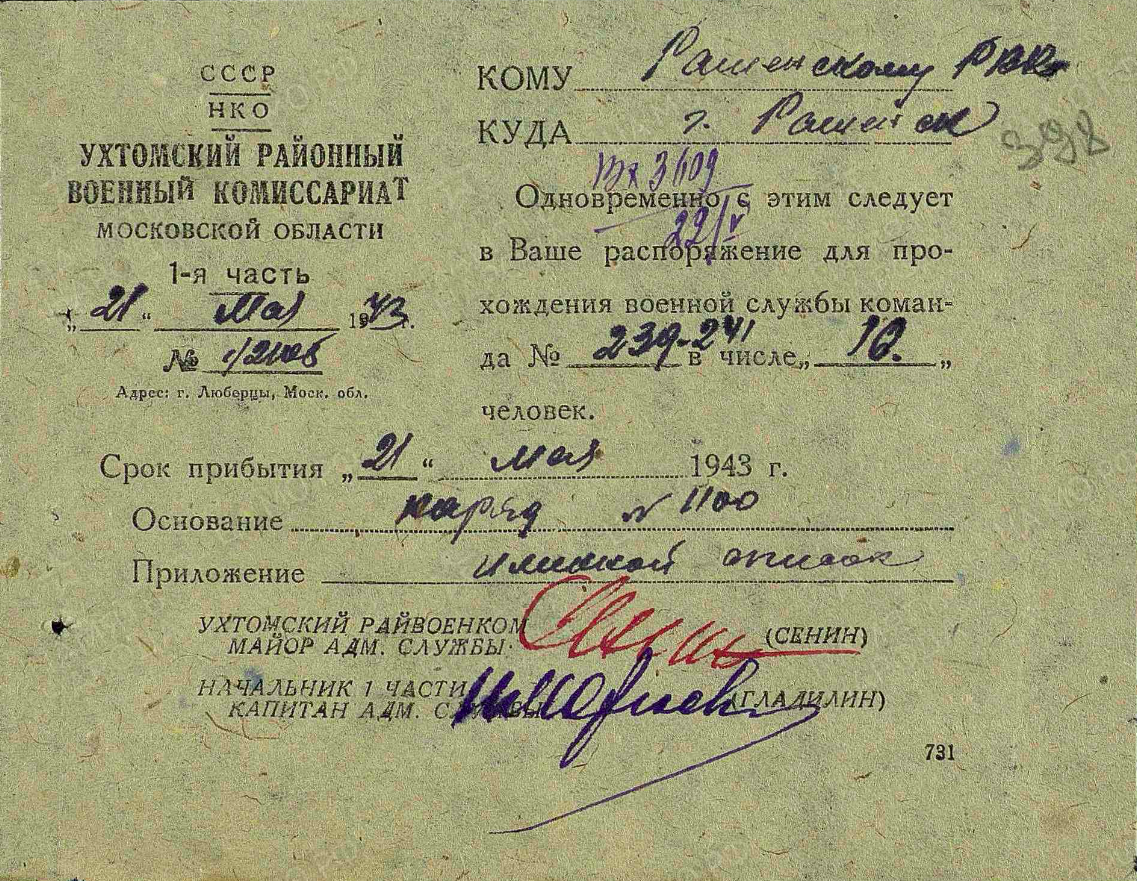 СССР
НКО
УХТОМСКИЙ РАЙОННЫЙ
ВОЕННЫЙ КОМИССАРИАТ
МОСКОВСКОЙ ОБЛАСТИ
1-я часть
„21“ Мая 1943.
№
Адрес: г. Люберцы, Моск. обл.
КОМУ Раменскому РВК
КУДА г. Раменск
398
Вх 3609
22/V
Одновременно с этим следует
в Ваше распоряжение для про-
хождения военной службы коман-
да № 239-241 в числе „10.„
человек.
Срок прибытия „21“ мая 1943 г.
Основание наряд № 1100
Приложение именной список
УХТОМСКИЙ РАЙВОЕНКОМ
МАЙОР АДМ. СЛУЖБЫ (СЕНИН)
НАЧАЛЬНИК 1 ЧАСТИ
КАПИТАН АДМ. СЛУЖБЫ (ГЛАДИЛИН)
731